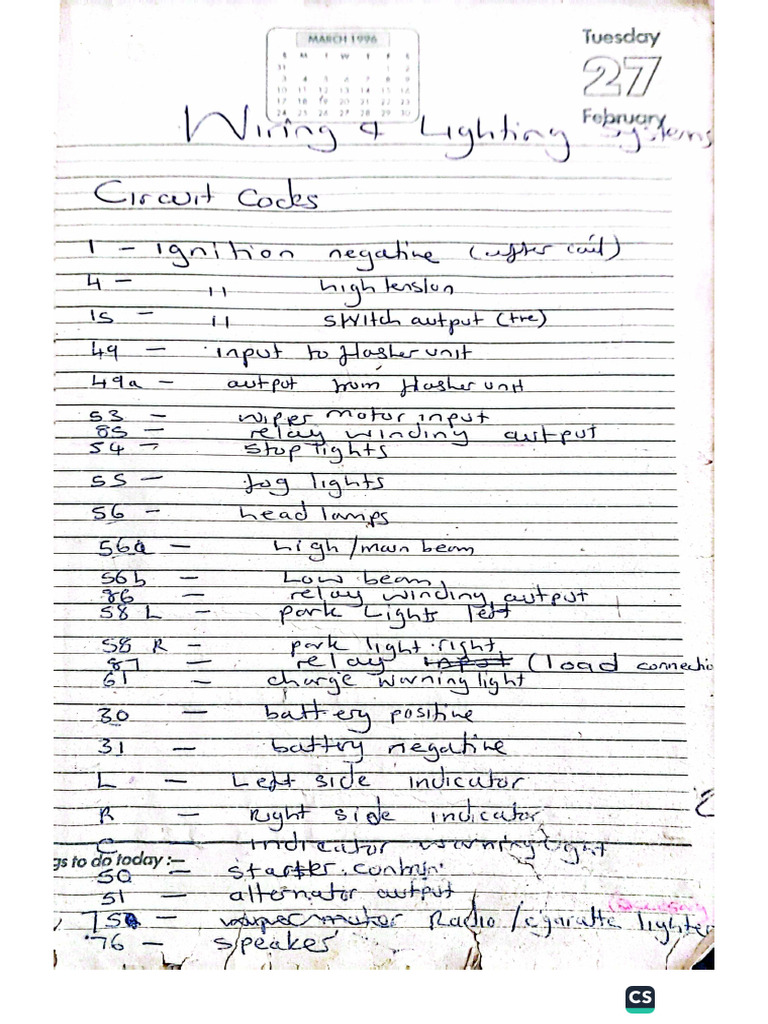 MARCH 1996
S M T W T F S
31 1 2
3 4 5 6 7 8 9
10 11 12 13 14 15 16
17 18 19 20 21 22 23
24 25 26 27 28 29 30
Tuesday
27
February
Wiring & Lighting Systems
Circuit Codes
1 - ignition negative (after coil)
4 - " high tension
15 - " switch output (+ve)
49 - input to flasher unit
49a - output from flasher unit
53 - wiper motor input
85 - relay winding output
54 - stop lights
55 - fog lights
56 - head lamps
56a - high/main beam
56b - Low beam
86 - relay winding output
58 L - park Lights left
58 R - park light right
87 - relay input (load connectio
61 - charge warning light
30 - battery positive
31 - battery negative
L - Left side indicator
R - Right side indicator
C - indicator warning light
gs to do today :-
50 - starter
51 - alternator output
75 - Radio / cgaratte lighter
76 - speaker
CS